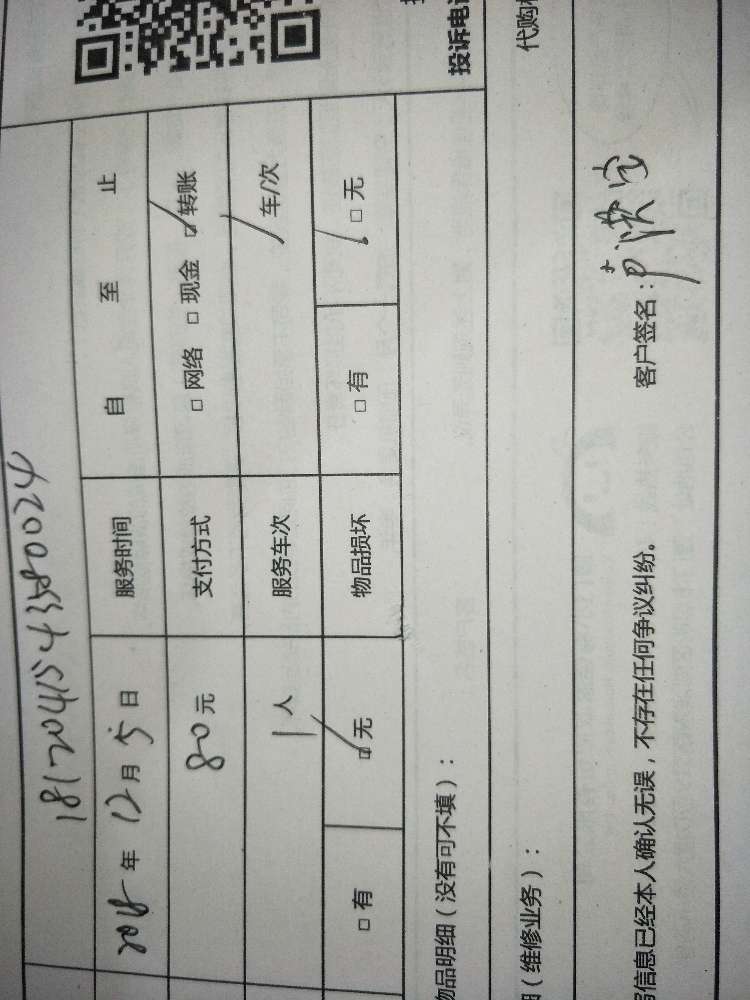 1812041543580024
2018年12月5日 服务时间 自 至 止
80元 支付方式 □ 网络 □ 现金 □ 转账
1人 服务车次 / 车/次
□ 有 □ 无 物品损坏 □ 有 □ 无
物品明细（没有可不填）： 投诉电
（维修业务）： 代购
信息已经本人确认无误，不存在任何争议纠纷。 客户签名：